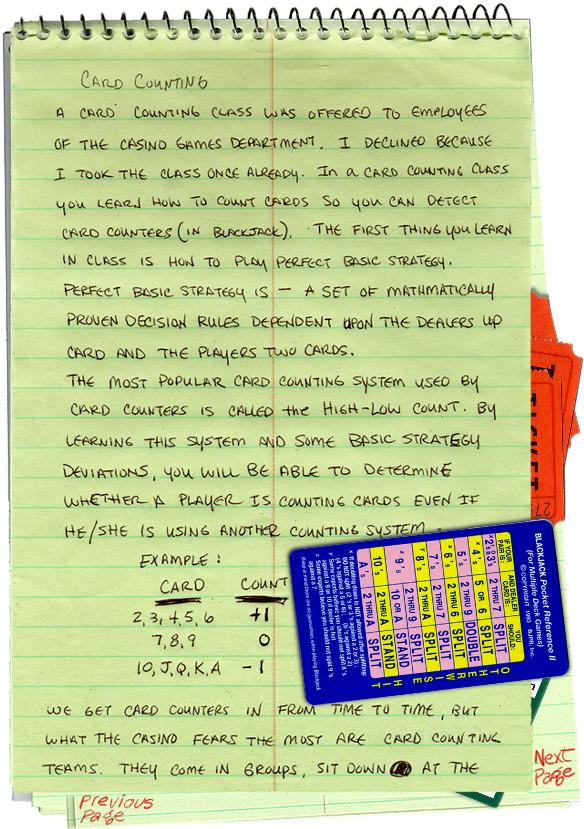 CARD COUNTING
A CARD COUNTING CLASS WAS OFFERED TO EMPLOYEES
OF THE CASINO GAMES DEPARTMENT. I DECLINED BECAUSE
I TOOK THE CLASS ONCE ALREADY. In a CARD COUNTING CLASS
YOU LEARN HOW TO COUNT CARDS SO YOU CAN DETECT
CARD COUNTERS (IN BLACKJACK). THE FIRST THING YOU LEARN
IN CLASS IS HOW TO PLAY PERFECT BASIC STRATEGY.
PERFECT BASIC STRATEGY IS — A SET OF MATHMATICALLY
PROVEN DECISION RULES DEPENDENT UPON THE DEALERS UP
CARD AND THE PLAYERS TWO CARDS.
THE MOST POPULAR CARD COUNTING SYSTEM USED BY
CARD COUNTERS IS CALLED the HIGH-LOW COUNT. BY
LEARNING THIS SYSTEM AND SOME BASIC STRATEGY
DEVIATIONS, YOU WILL BE ABLE TO DETERMINE
WHETHER A PLAYER IS COUNTING CARDS EVEN IF
HE/SHE IS USING ANOTHER COUNTING SYSTEM.
EXAMPLE:
CARD COUNT
2, 3, 4, 5, 6 +1
7, 8, 9 0
10, J, Q, K, A -1
WE GET CARD COUNTERS IN FROM TIME TO TIME, BUT
WHAT THE CASINO FEARS THE MOST ARE CARD COUNTING
TEAMS. THEY COME IN GROUPS, SIT DOWN AT THE
Previous
Page
Next
Page
TICKET
27
BLACKJACK Pocket Reference II
(For Multiple Deck Games)
© COPYRIGHT 1993 BJPRI, Inc.
IF YOUR PAIR IS: AND DEALER HAS: SHOULD:
2's 3's 2 THRU 7 SPLIT
x 4's 5 OR 6 SPLIT
5's 2 THRU 9 DOUBLE
x 6's 2 THRU 6 SPLIT
7's 2 THRU 7 SPLIT
8's 2 THRU A SPLIT
9's 2 THRU 9 SPLIT
10 OR A STAND
10's 2 THRU A STAND
A's 2 THRU A SPLIT
OTHERWISE HIT